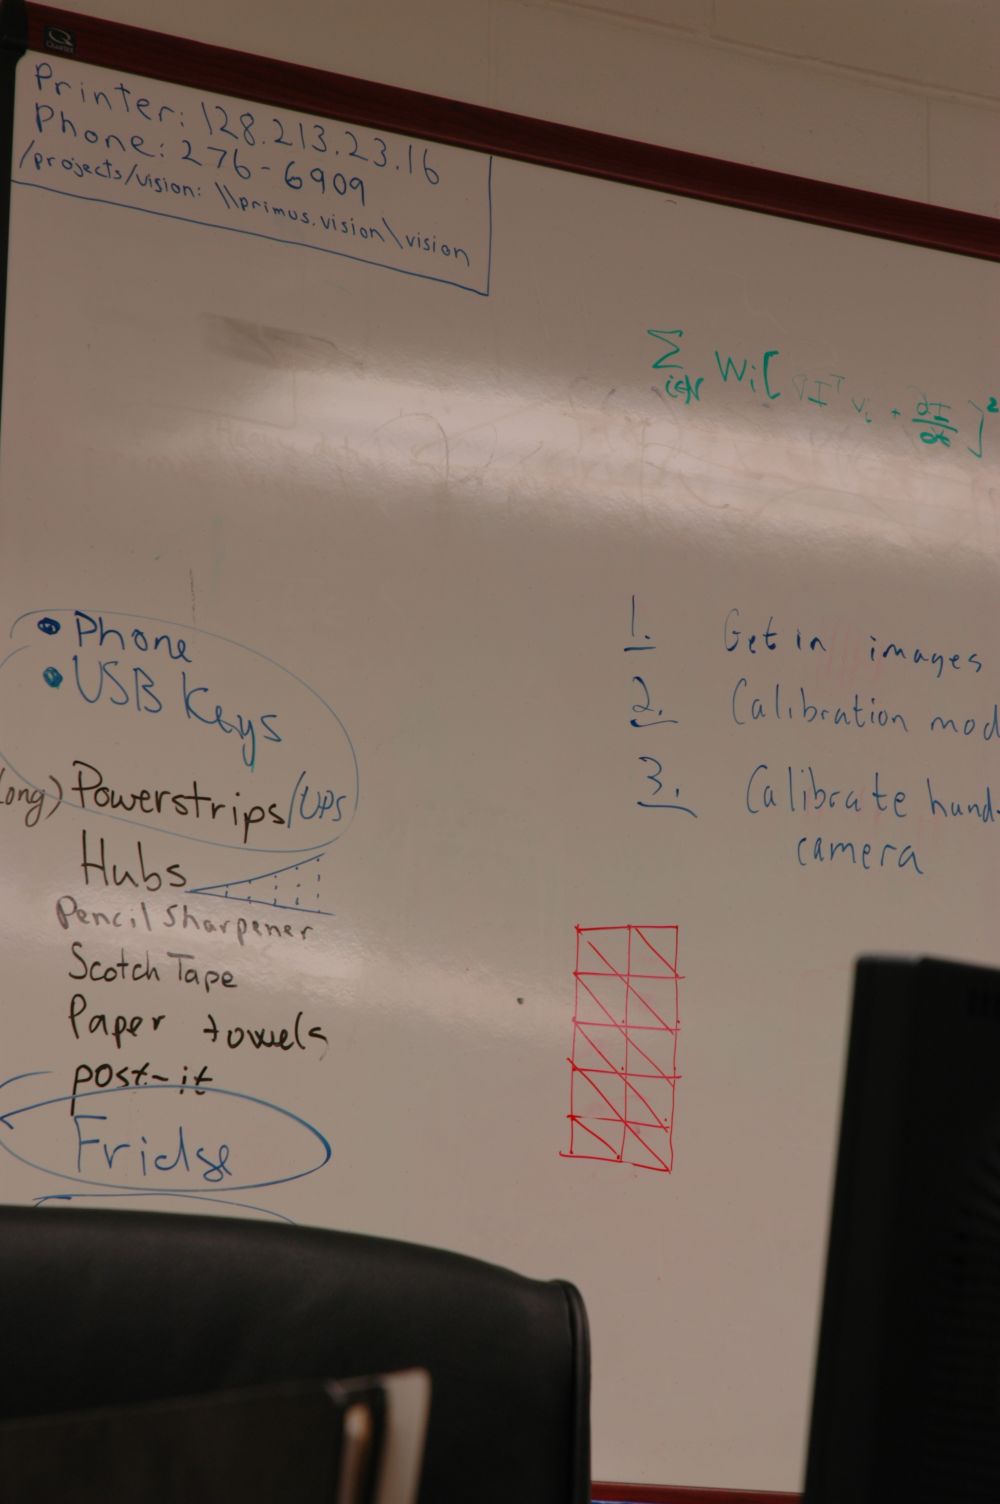 Quartet
Printer: 128.213.23.16
Phone: 276-6909
/projects/vision: \\primus.vision\vision
∑ i∈N Wi[ ∇I^T vi + ∂I/∂t ]²
• Phone
• USB Keys
Long) Powerstrips/UPS
Hubs
Pencil Sharpener
Scotch Tape
Paper towels
post-it
Fridge
1. Get in images
2. Calibration mod
3. Calibrate hand-
camera